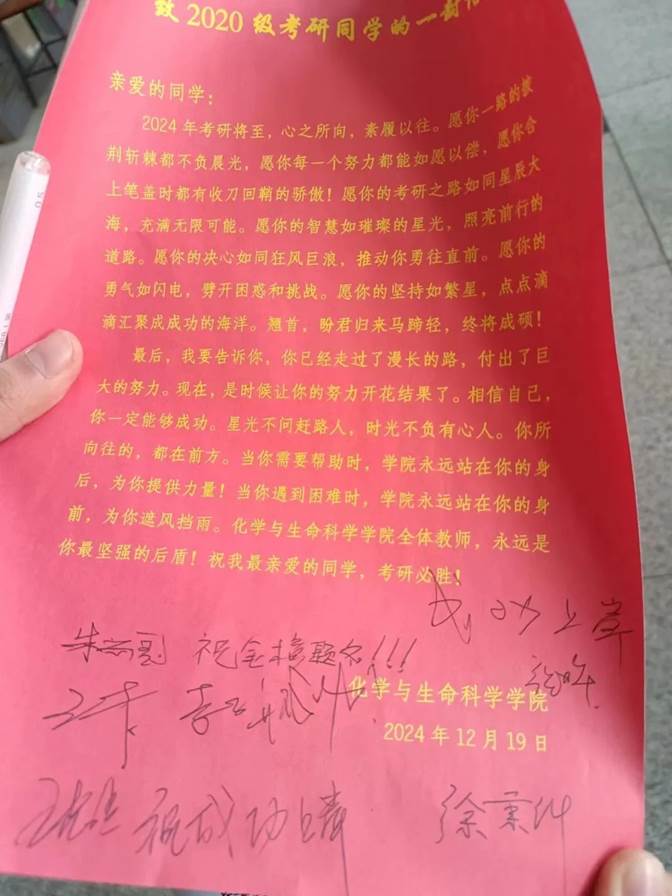 致2020级考研同学的一封信
亲爱的同学：
2024年考研将至，心之所向，素履以往。愿你一路的披
荆斩棘都不负晨光，愿你每一个努力都能如愿以偿，愿你合
上笔盖时都有收刀回鞘的骄傲！愿你的考研之路如同星辰大
海，充满无限可能。愿你的智慧如璀璨的星光，照亮前行的
道路。愿你的决心如同狂风巨浪，推动你勇往直前。愿你的
勇气如闪电，劈开困惑和挑战。愿你的坚持如繁星，点点滴
滴汇聚成成功的海洋。翘首，盼君归来马蹄轻，终将成硕！
最后，我要告诉你，你已经走过了漫长的路，付出了巨
大的努力。现在，是时候让你的努力开花结果了。相信自己，
你一定能够成功。星光不问赶路人，时光不负有心人。你所
向往的，都在前方。当你需要帮助时，学院永远站在你的身
后，为你提供力量！当你遇到困难时，学院永远站在你的身
前，为你遮风挡雨。化学与生命科学学院全体教师，永远是
你最坚强的后盾！祝我最亲爱的同学，考研必胜！
成功上岸
祝金榜题名!!!
化学与生命科学学院
2024年12月19日
祝成功上岸